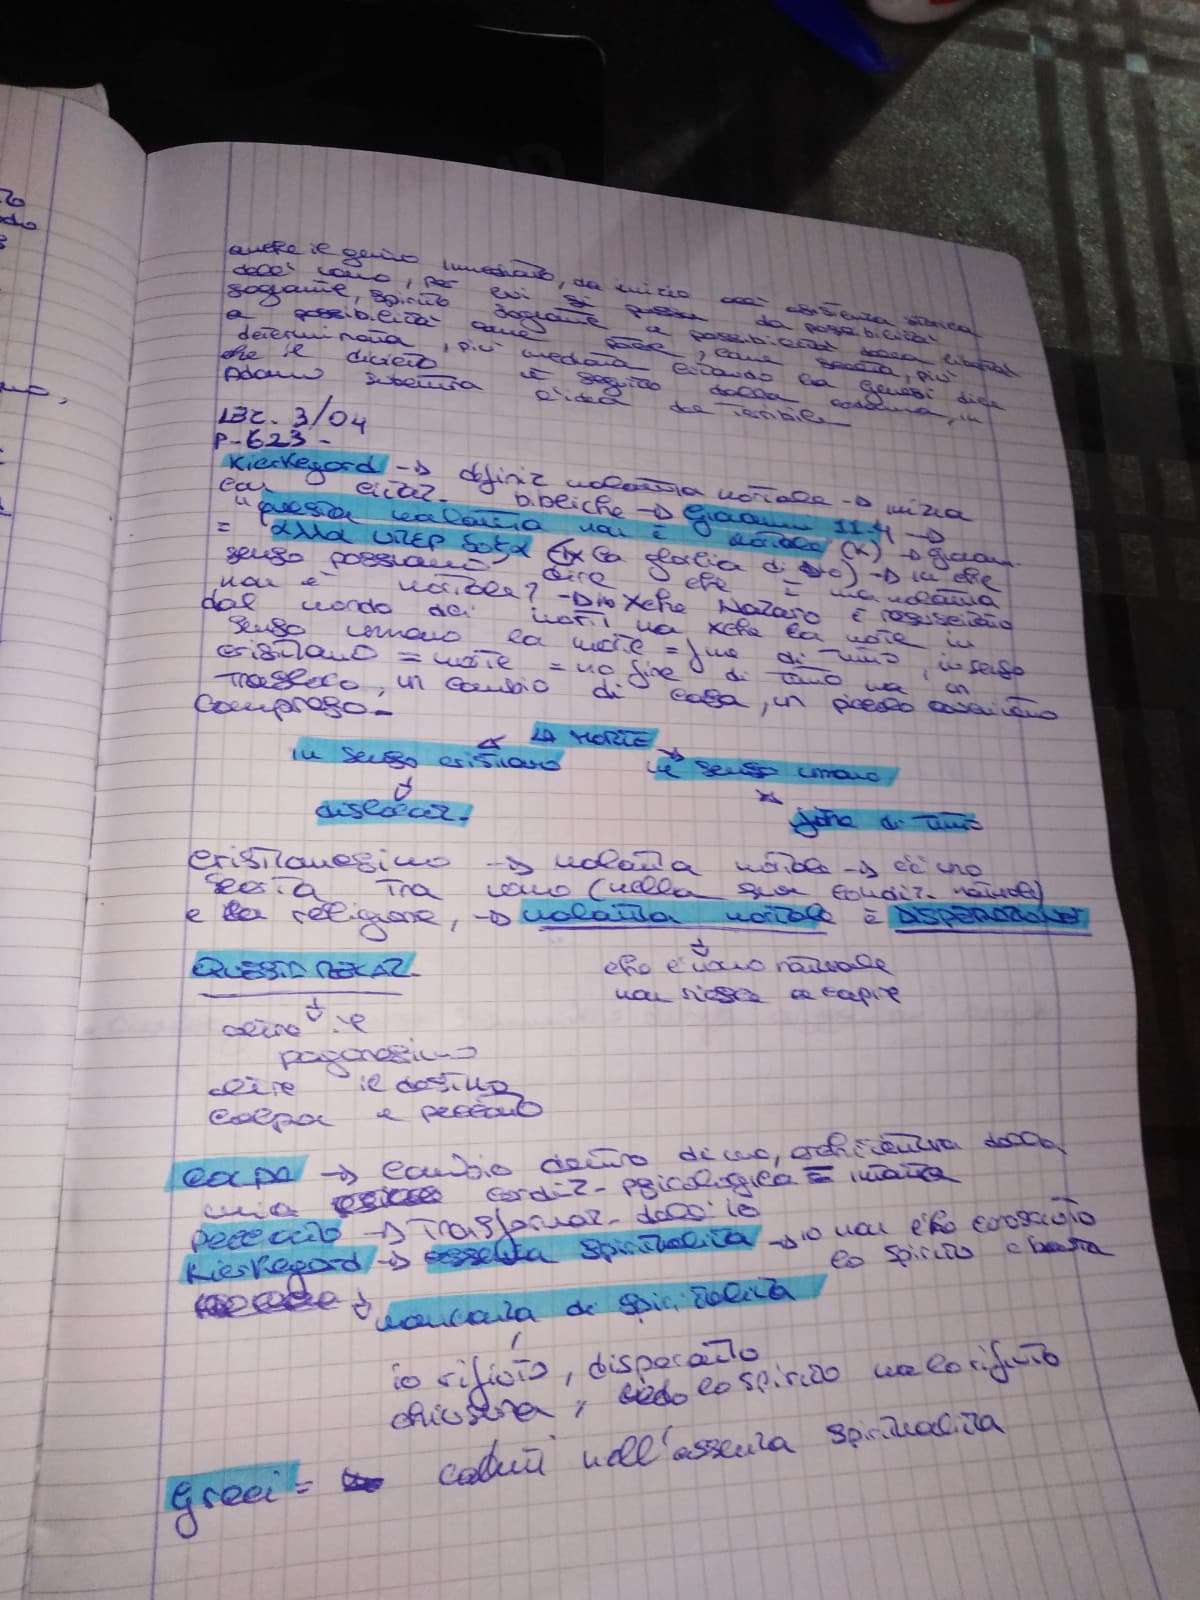 anche il genio immediato, dà inizio all'esistenza storica
dell'uomo, per cui si passa da possibilità
sognante, spirito sognante a possibilità della libertà
a possibilità come, come scelta, più
determinata, più mediata citando la genesi dice
che il divieto è seguito dalla condanna, in
Adamo subentra l'idea del terribile
LEZ. 3/04
P-623-
Kierkegard → definiz malattia mortale → inizia
con citaz. bibliche → Giovanni 11.4 →
"questa malattia non è mortale (x) →
= αλλα υπερ δοξα (x la gloria di Dio) → in che
senso possiamo dire che è una malattia
non è mortale? → no xchè Lazzaro è resuscitato
dal mondo dei morti ma xchè la morte in
senso umano la morte = fine di tutto, in senso
cristiano = morte = no fine di tutto ma un
trasloco, un cambio di casa, un piccolo avvenimento
Compreso-
LA MORTE
in senso cristiano in senso umano
↓
dislocaz. fine di tutto
cristianesimo → malattia mortale → c'è una
lotta tra uomo (nella sua condiz. naturale)
e la religione, → malattia mortale è DISPERAZIONE
QUESTA PECCAZ. che l'uomo naturale
↓ non riesce a capire
oltre il
paganesimo
oltre il destino
colpa e peccato
colpa → cambio dentro di me, della
mia condiz. psicologica = intatta
peccato → trasformaz. dell'io
Kierkegard → assenza spiritualità → io non l'ho conosciuto
lo spirito e basta
↓ mancata di spiritualità
io rifiuto, disperato
chiusura, vedo lo spirito ma lo rifiuto
greci = caduti nell'assenza spiritualità